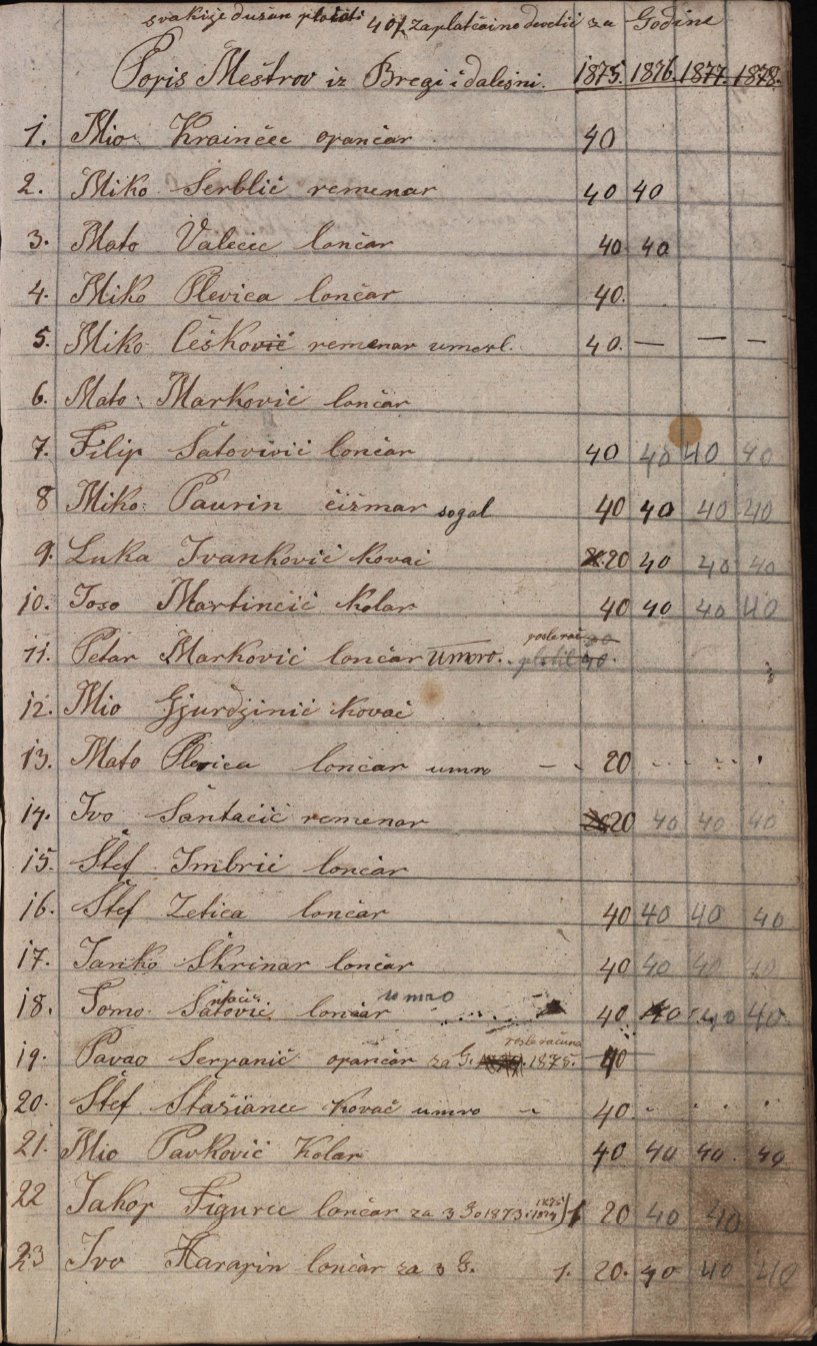 svaki je dužan platiti 40 f zaplatčaino devetić za Godine
Popis Meštrov iz Bregi i dalešni. 1875. 1876. 1877. 1878.
1. Mio Krainčec opančar 40
2. Miko Serblić remenar 40 40
3. Mato Valecic lončar 40 40
4. Miko Plevica lončar 40.
5. Miko Češković remenar umerl. 40. — — —
6. Mato Marković lončar
7. Filip Šatovivić lončar 40 40 40 40
8 Miko Paurin čižmar sogal 40 40 40 40
9. Luka Ivanković kovač 20 40 40 40
10. Joso Martinčić kolar 40 40 40 40
11. Petar Marković lončar umro. platil 40.
12. Mio Gjurdjinić kovač
13. Mato Plevica lončar umro - - 20
14. Ivo Šantačić remenar 20 40 40 40
15. Štef Imbrić lončar
16. Štef Zetica lončar 40 40 40 40
17. Janko Škrinar lončar 40 40 40 40
18. Tomo Šatović lončar umro 40 40 40 40
19. Pavao Serpanić opančar za G. 1875. posle računa 40
20. Štef Stašianec kovač umro - 40
21. Mio Pavković kolar 40 40 40 40
22 Jakop Figurec lončar za 3 Go 1873. 1874 1875 1 20 40 40
23 Ivo Harapin lončar za 3 G. 1. 20. 40 40 40